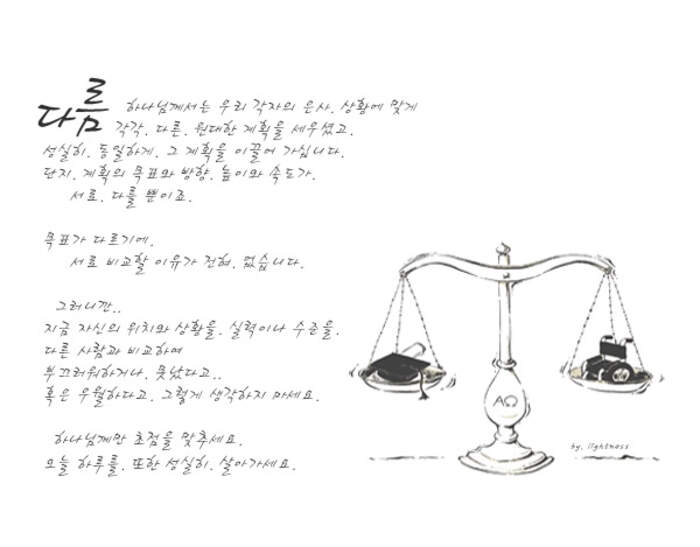 다름 하나님께서는 우리 각자의 은사. 상황에 맞게
각각. 다른. 원대한 계획을 세우셨고.
성실히. 동일하게. 그 계획을 이끌어 가십니다.
단지. 계획의 목표와 방향. 높이와 속도가.
서로. 다를 뿐이죠.
목표가 다르기에.
서로 비교할 이유가 전혀. 없습니다.
그러니깐..
지금 자신의 위치와 상황을. 실력이나 수준을.
다른 사람과 비교하여
부끄러워하거나. 못났다고..
혹은 우월하다고. 그렇게 생각하지 마세요.
하나님께만 초점을 맞추세요.
오늘 하루를. 또한 성실히. 살아가세요.
ΑΩ
by. lightness